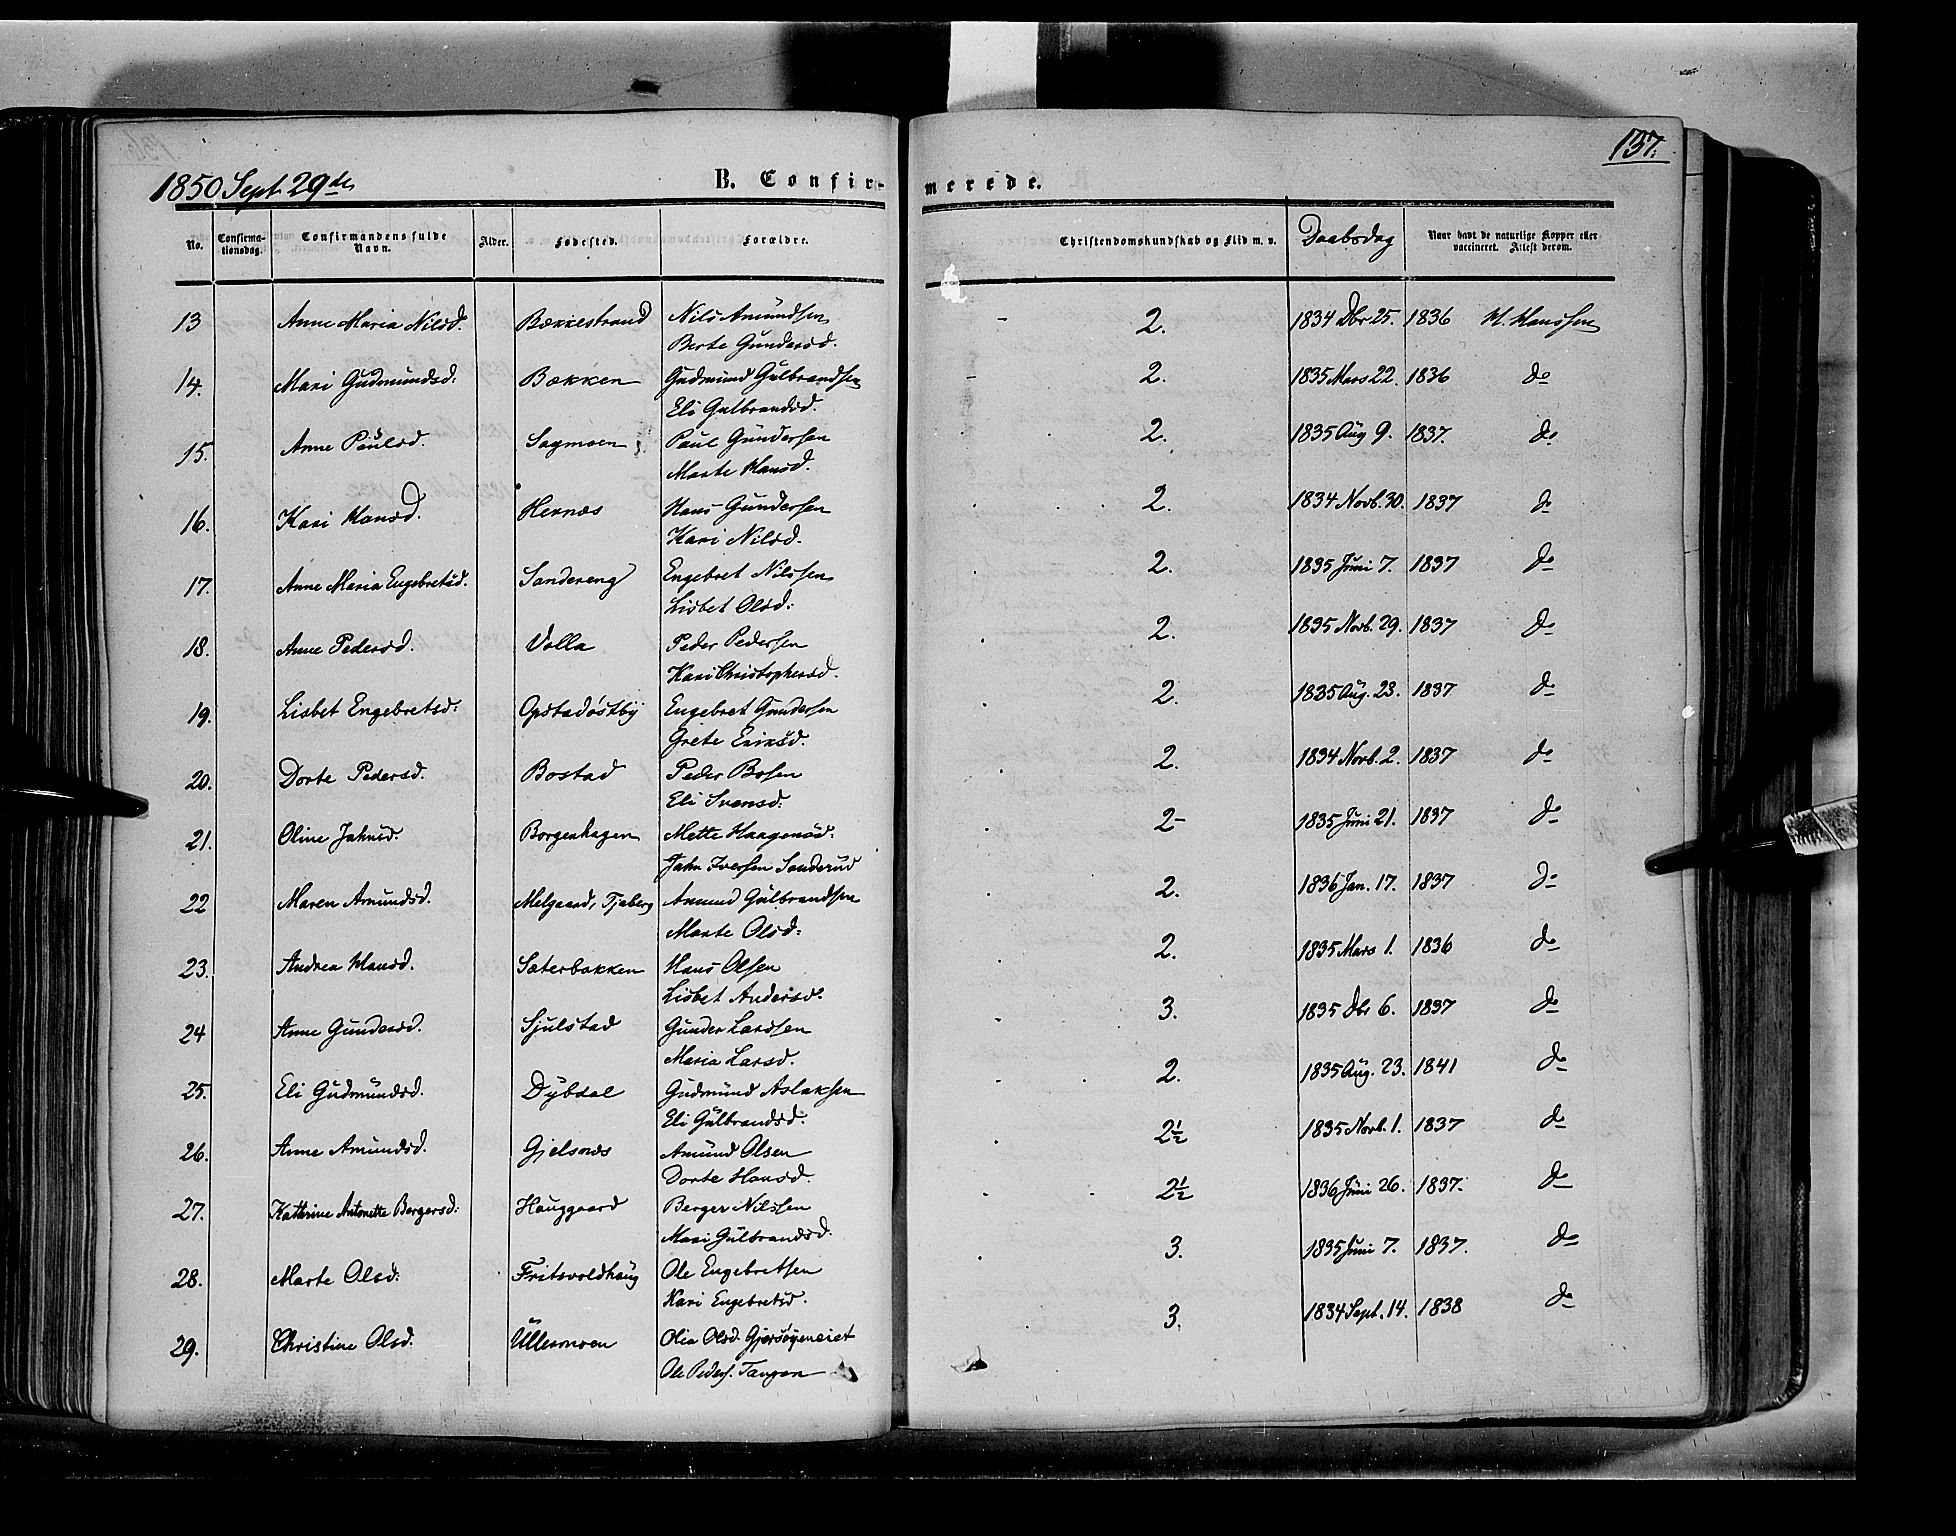 137.
1850 Sept. 29de
B. Confir-
merede.
No.
Confirma-
tionsdag.
Confirmandens fulde
Navn.
Alder.
Fødested.
Forældre.
Christendomskundskab og Flid m. v.
Daabsdag
Naar havt de naturlige Kopper eller
vaccineret. Attest derom.
13 Anne Maria Nilsd. Bækkestrand Nils Amundsen 2. 1834 Dbr 25. 1836 H. Hanssen
Berte Gundersd.
14. Mari Gudmundsd: Bækken Gudmund Gulbrandsen 2. 1835 Mars 22. 1836 do
Eli Gulbrandsd.
15. Anne Paulsd. Sagmoen Paul Gundersen 2. 1835 Aug 9. 1837. do
Marte Hansd.
16. Kari Hansd. Hernæs Hans Gundersen 2. 1834 Novb. 30. 1837 do
Kari Nilsd.
17. Anne Maria Engebretsd. Sandereng Engebret Nilssen 2. 1835 Juni 7. 1837 do
Lisbet Olsd:
18. Anne Pedersd. Volla Peder Pedersen 2. 1835 Novb. 29. 1837 do
Kari Christophersd.
19. Lisbet Engebretsd: Opstadøstby Engebret Gundersen 2. 1835 Aug. 23. 1837 do
Grete Eriksd.
20. Dorte Pedersd. Bostad Peder Bosen 2. 1834 Novb. 2. 1837 do
Eli Svensd:
21. Oline Jahnsd. Borgenhagen Mette Haagensd: 2- 1835 Juni 21. 1837 do
Jahn Iversen Sanderud
22 Maren Amundsd. Melgaard, Tjaberg Amund Gulbrandsen 2. 1836 Jan. 17. 1837 do
Marte Olsd:
23. Andrea Hansd. Sæterbakken Hans Olsen 2. 1835 Mars 1. 1836 do
Lisbet Andersd.
24 Anne Gundersd. Sjulstad Gunder Larssen 3. 1835 Dbr 6. 1837 do
Maria Larsd.
25. Eli Gudmundsd. Dybdal Gudmund Aslaksen 2. 1835 Aug. 23. 1841 do
Eli Gulbrandsd:
26. Anne Amundsd. Gjelsnes Amund Olsen 2½ 1835 Novb. 1. 1837 do
Dorte Hansd.
27. Kathrine Antonette Bergersd: Hauggaard Berger Nilssen 2½ 1836 Juni 26. 1837. do
Mari Gulbrandsd.
28. Marte Olsd: Fritsvoldhaug Ole Engebretsen 3. 1835 Juni 7. 1837. do
Kari Engebretsd.
29. Christine Olsd. Ullermoen Olia Olsd. Gjersøyeneiet 3. 1834 Sept. 14. 1838 do
Ole Peders. Tangen